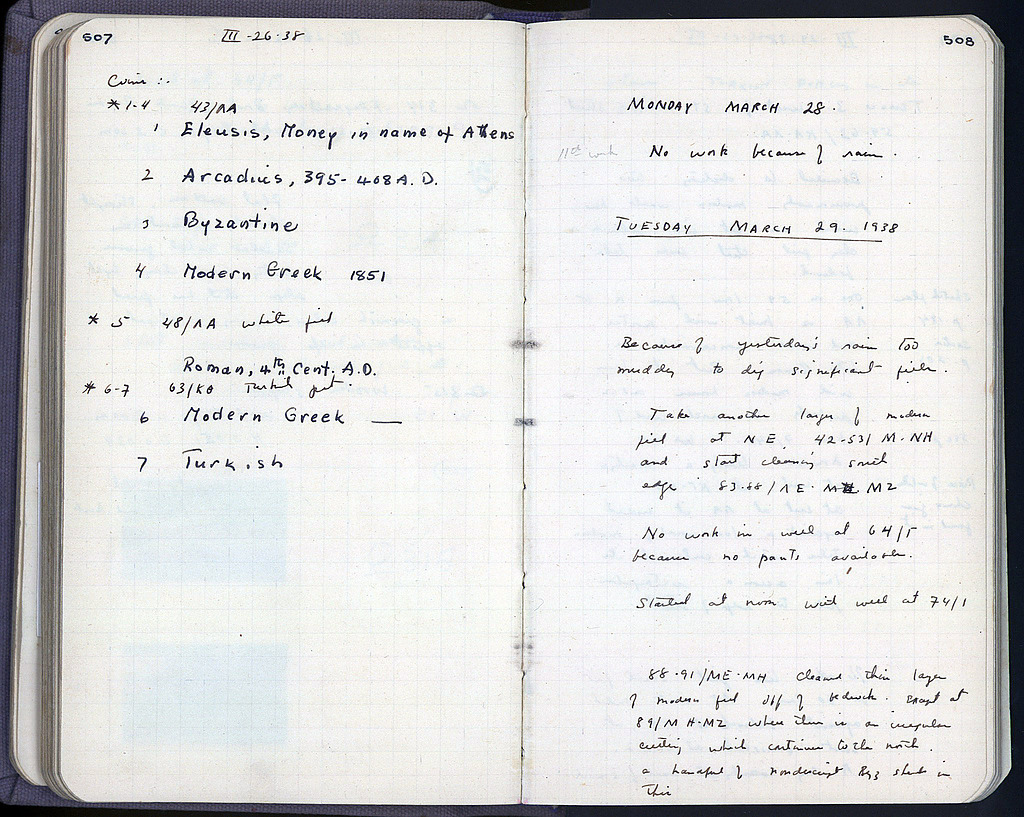 507
III-26-38
Coins :-
* 1-4 43/ΛΑ
1 Eleusis, Money in name of Athens
2 Arcadius, 395-408 A.D.
3 Byzantine
4 Modern Greek 1851
* 5 48/ΛΑ white fill
Roman, 4th Cent. A.D.
* 6-7 63/ΚΘ Turkish pit.
6 Modern Greek —
7 Turkish
508
MONDAY MARCH 28.
11th week No work because of rain.
TUESDAY MARCH 29. 1938
Because of yesterday's rain too
muddy to dig significant fills.
Take another layer of modern
fill at N.E. 42-53/ Μ-ΝΗ
and start cleaning south
edge 83-88/ΛΕ-ΜΖ
No work in well at 64/Γ
because no pants available.
Started at noon with well at 74/Ι
88-91/ΜΕ-ΜΗ cleaned thin layer
of modern fill off of bedrock. Except at
89/ΜΗ-ΜΖ where there is an irregular
cutting which continues to the north.
a handful of nondescript Byz sherds in
this